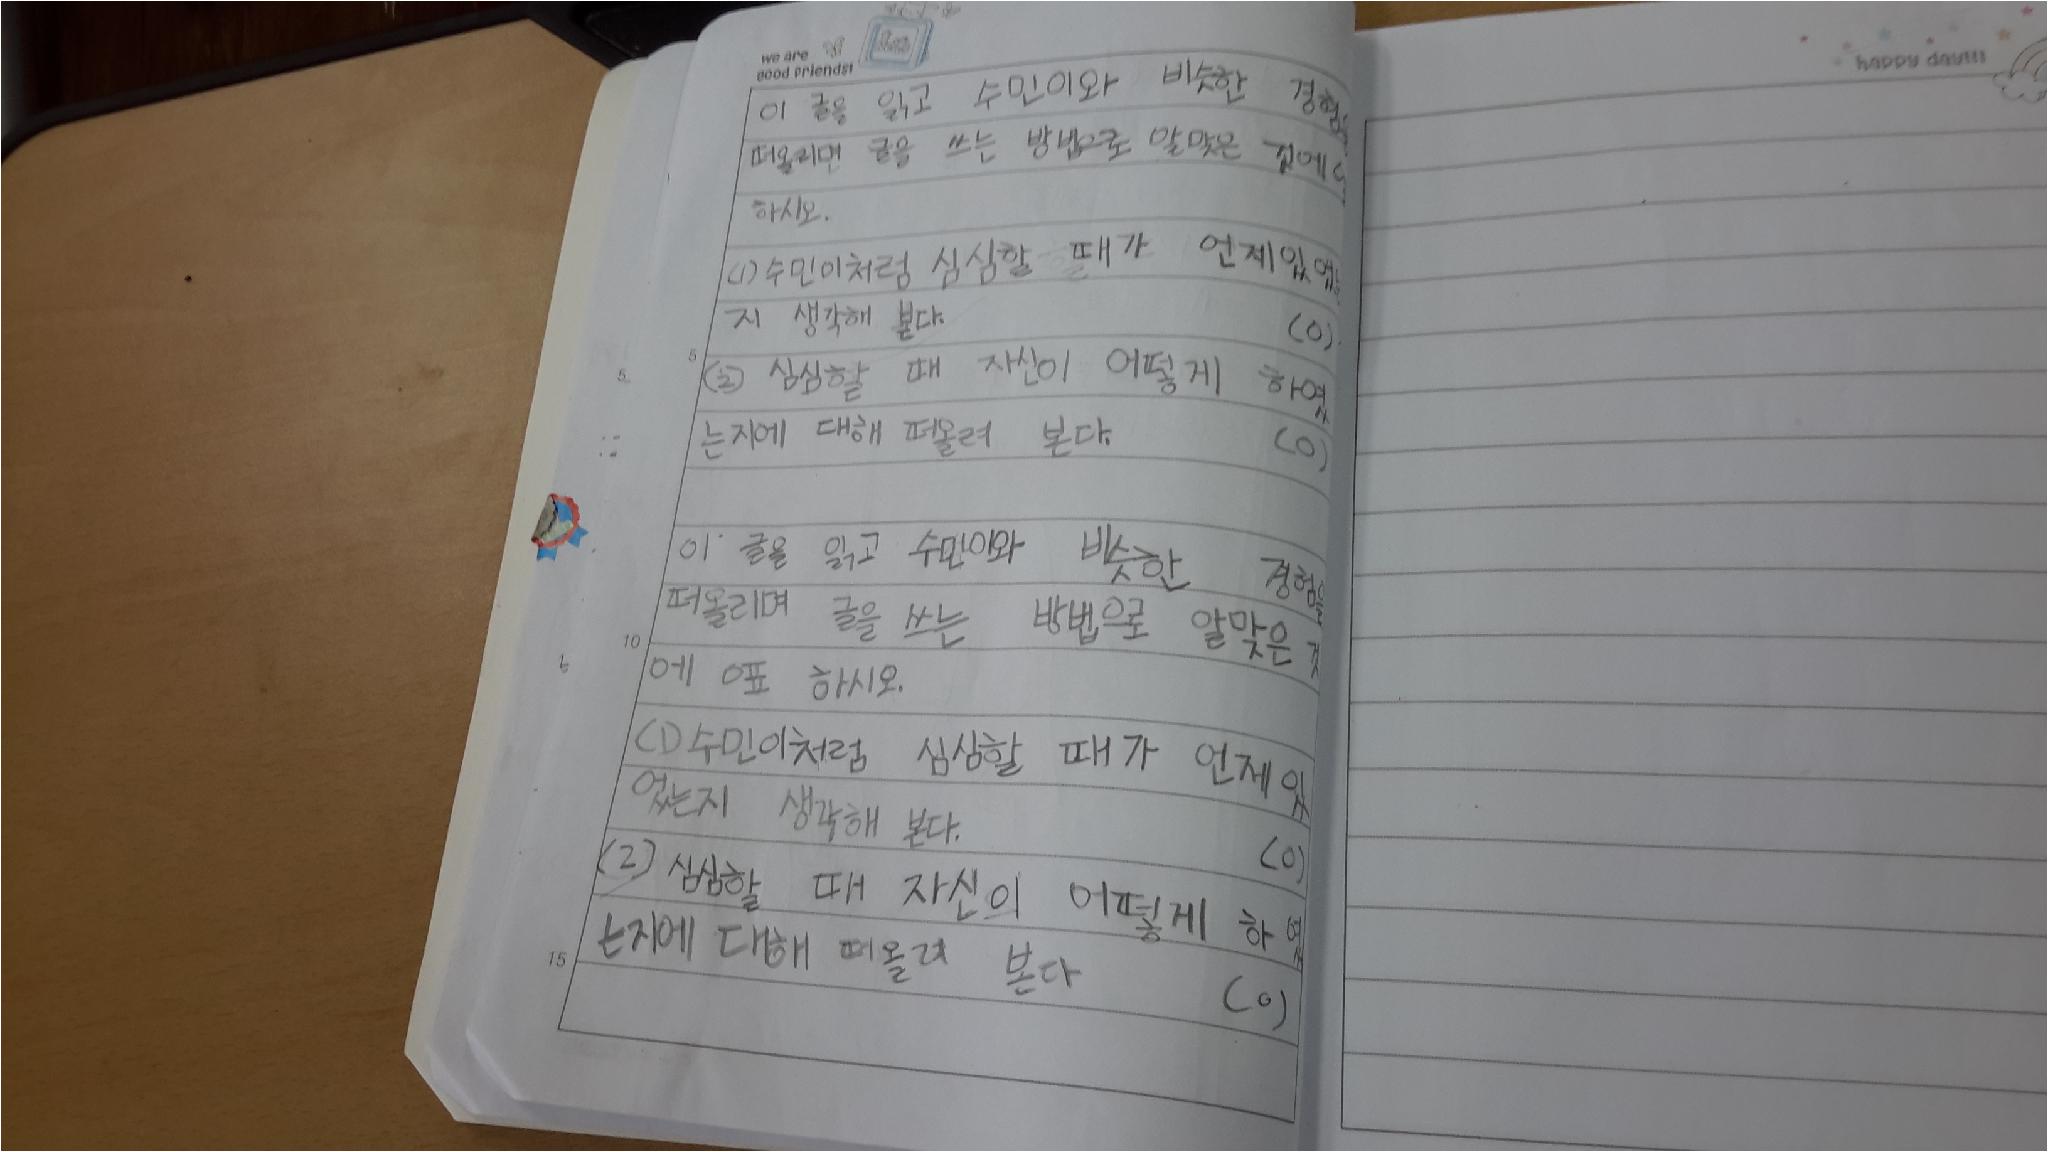 we are
good friends!
happy day!!!
이 글을 읽고 수민이와 비슷한 경험을
떠올리면 글을 쓰는 방법으로 알맞은
하시오.
(1) 수민이처럼 심심할 때가 언제있었는
지 생각해 본다. (O)
5
5
(2) 심심할 때 자신이 어떻게 하였
는지에 대해 떠올려 본다. (O)
이 글을 읽고 수민이와 비슷한 경험을
떠올리며 글을 쓰는 방법으로 알맞은 것
10
에 O표 하시오.
(1) 수민이처럼 심심할 때가 언제 있
었는지 생각해 본다. (O)
(2) 심심할 때 자신의 어떻게 하였
는지에 대해 떠올려 본다 (O)
15